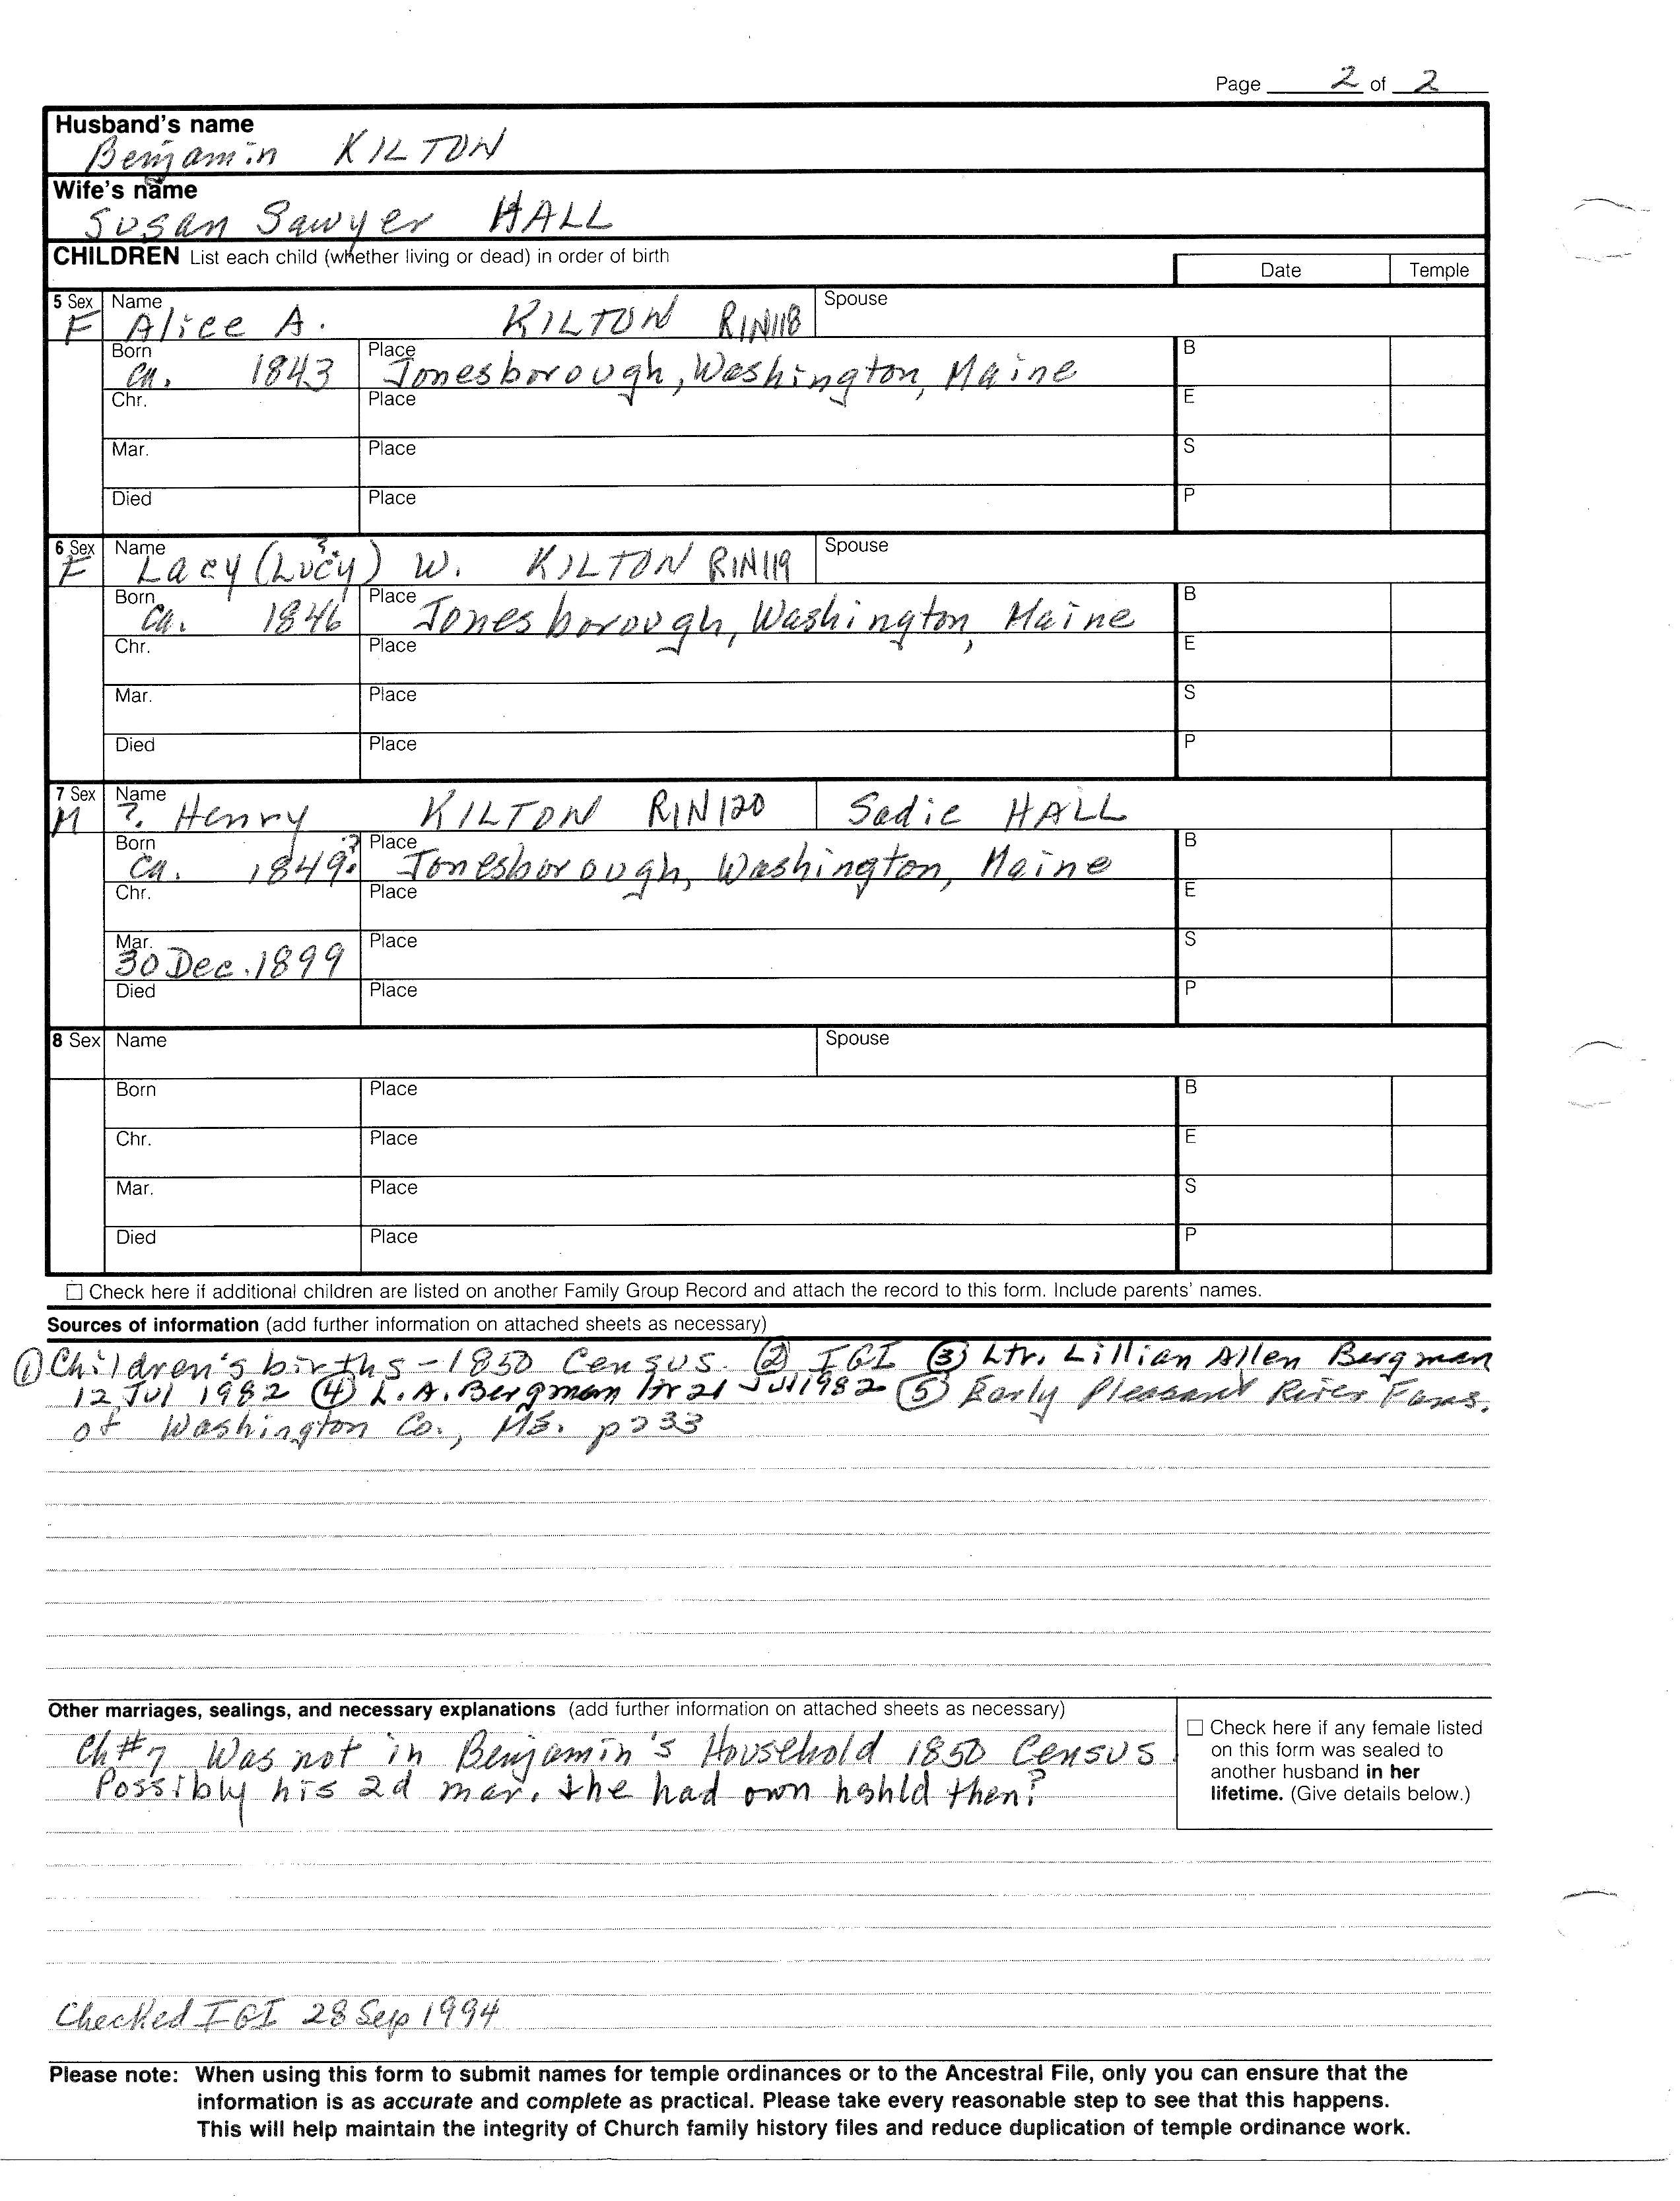 Page 2 of 2
Husband's name
Benjamin KILTON
Wife's name
Susan Sawyer HALL
CHILDREN List each child (whether living or dead) in order of birth
Date Temple
5 Sex Name Spouse
F Alice A. KILTON RIN118
Born Place B
Ca. 1843 Jonesborough, Washington, Maine
Chr. Place E
Mar. Place S
Died Place P
6 Sex Name Spouse
F Lacy (Lucy?) W. KILTON RIN119
Born Place B
Ca. 1846 Jonesborough, Washington, Maine
Chr. Place E
Mar. Place S
Died Place P
7 Sex Name
M ?. Henry KILTON RIN120 Sadie HALL
Born Place B
Ca. 1849? Jonesborough, Washington, Maine
Chr. Place E
Mar. Place S
30 Dec. 1899
Died Place P
8 Sex Name Spouse
Born Place B
Chr. Place E
Mar. Place S
Died Place P
☐ Check here if additional children are listed on another Family Group Record and attach the record to this form. Include parents' names.
Sources of information (add further information on attached sheets as necessary)
① Children's births - 1850 Census. ② IGI ③ Ltr. Lillian Allen Bergman
12 Jul 1982 ④ L. A. Bergman ltr 21 Jul 1982 ⑤ Early Pleasant River Fams.
of Washington Co., ME. p233
Other marriages, sealings, and necessary explanations (add further information on attached sheets as necessary)
Ch#7 Was not in Benjamin's Household 1850 Census.
Possibly his 2d mar. & he had own hshld then?
☐ Check here if any female listed
on this form was sealed to
another husband in her
lifetime. (Give details below.)
Checked IGI 28 Sep 1994
Please note: When using this form to submit names for temple ordinances or to the Ancestral File, only you can ensure that the
information is as accurate and complete as practical. Please take every reasonable step to see that this happens.
This will help maintain the integrity of Church family history files and reduce duplication of temple ordinance work.